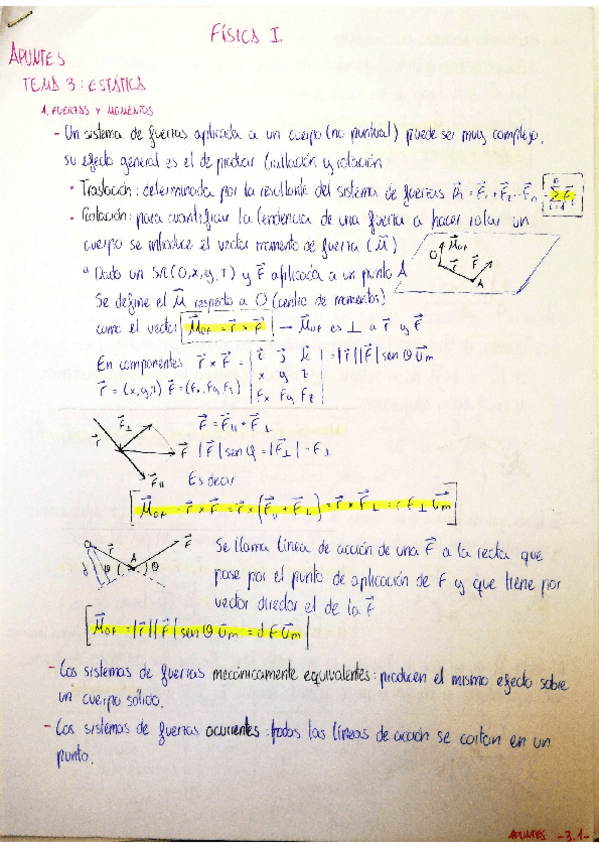 FÍSICA I.
APUNTES
TEMA 3: ESTÁTICA
1. FUERZAS Y MOMENTOS
- Un sistema de fuerzas aplicada a un cuerpo (no puntual) puede ser muy complejo,
su efecto general es el de producir traslación y rotación
• Traslación: determinada por la resultante del sistema de fuerzas R⃗ = F⃗₁ + F⃗₂ ... F⃗ₙ
• Rotación: para cuantificar la tendencia de una fuerza a hacer rotar un
cuerpo se introduce el vector momento de fuerza (M⃗)
Dado un SR (O,x,y,z) y F⃗ aplicada a un punto A
Se define el M⃗ respecto a O (centro de momentos)
como el vector M⃗OF = r⃗ × F⃗ → M⃗OF es ⊥ a r⃗ y F⃗
O M⃗OF r⃗ F⃗ A
En componentes r⃗ × F⃗ = | i⃗ j⃗ k⃗ | = |r⃗||F⃗| sen θ u⃗m
x y z
r⃗ = (x,y,z) F⃗ = (Fx, Fy, Fz) Fx Fy Fz
r⃗ F⃗⊥ F⃗ F⃗∥
F⃗ = F⃗∥ + F⃗⊥
|F⃗| sen φ = |F⃗⊥| = F⊥
Es decir
M⃗OF = r⃗ × F⃗ = r⃗ × (F⃗∥ + F⃗⊥) = r⃗ × F⃗⊥ = r F⊥ u⃗m
O r⃗ A F⃗ d φ θ
Se llama línea de acción de una F⃗ a la recta que
pase por el punto de aplicación de F y que tiene por
vector director el de la F⃗
M⃗OF = |r⃗||F⃗| sen θ u⃗m = d F u⃗m
- Los sistemas de fuerzas mecánicamente equivalentes: producen el mismo efecto sobre
un cuerpo sólido.
- Los sistemas de fuerzas ocurrentes: todas las líneas de acción se cortan en un
punto.
APUNTES -3.1-